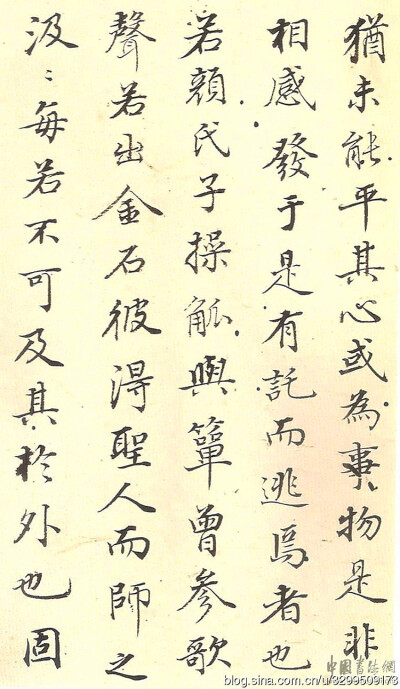 猶未能平其心或為事物是非
相感發于是有託而逃焉者也
若顏氏子操觚與簞曾參歌
聲若出金石彼得聖人而師之
汲〻每若不可及其於外也固
中國書法網
blog.sina.com.cn/u/3299509173